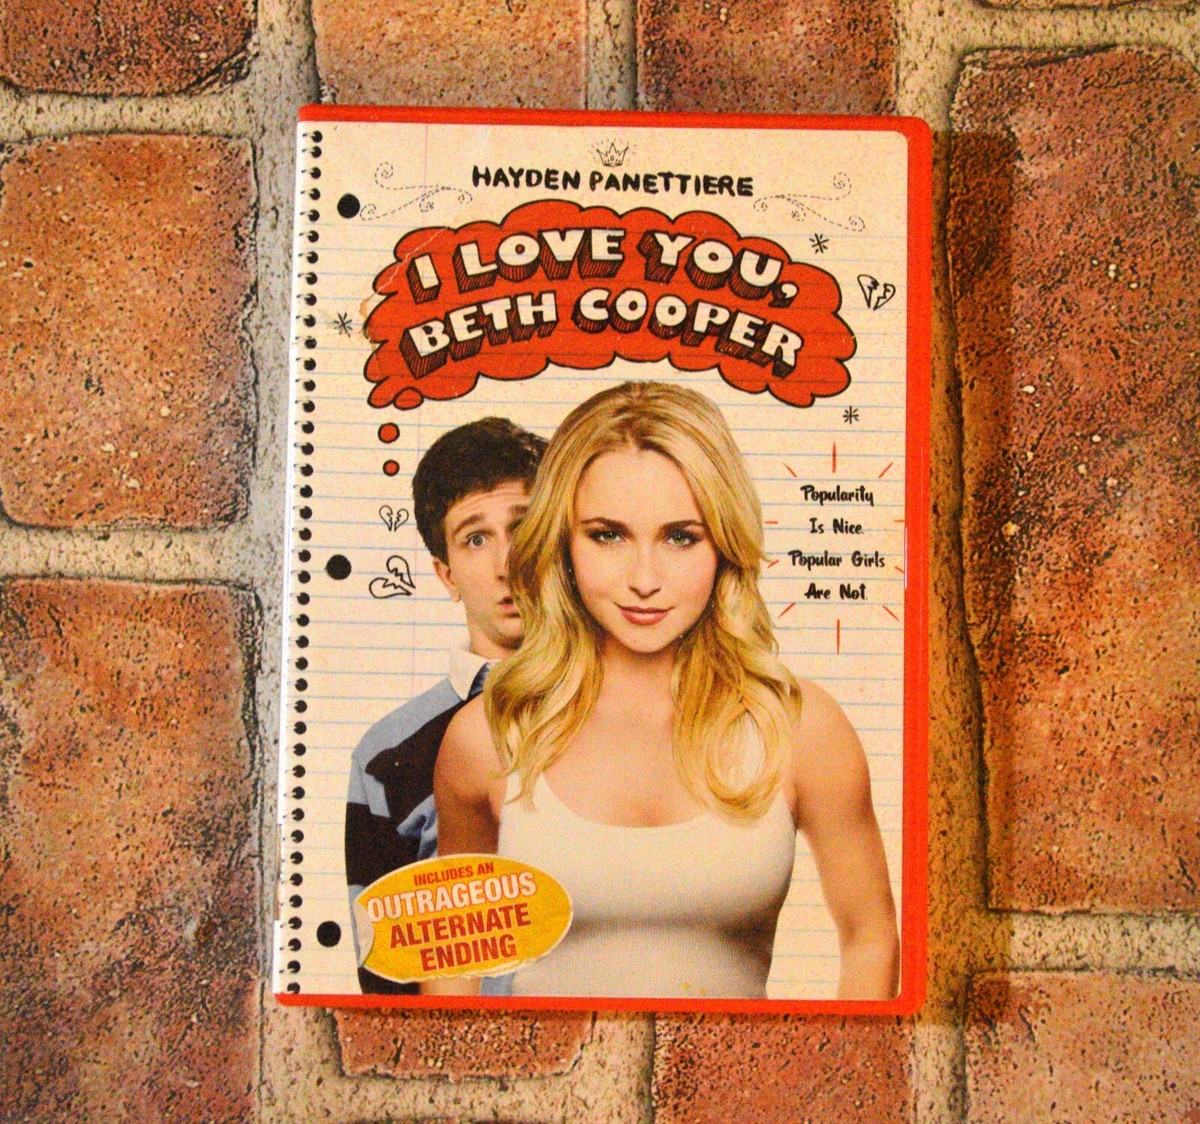 HAYDEN PANETTIERE
I LOVE YOU,
BETH COOPER
Popularity
Is Nice.
Popular Girls
Are Not.
INCLUDES AN
OUTRAGEOUS
ALTERNATE
ENDING